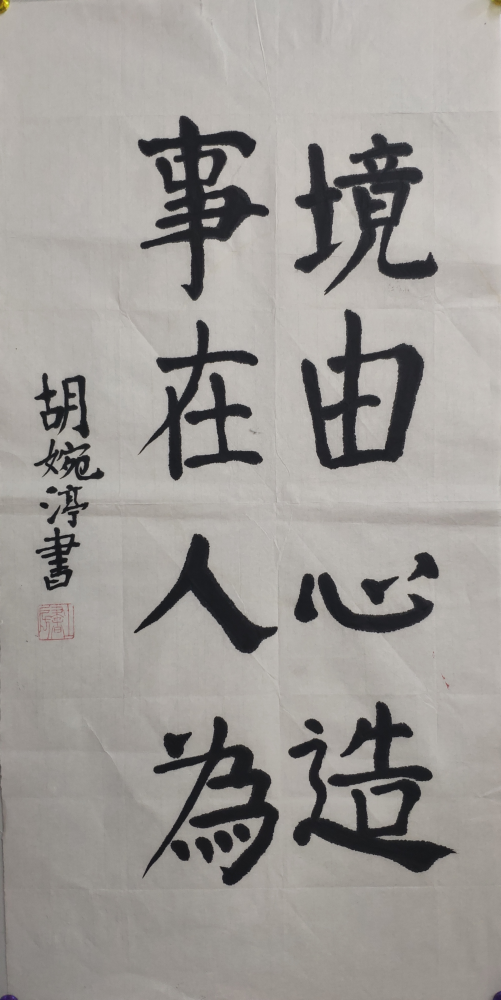 境由心造
事在人為
胡婉渟書